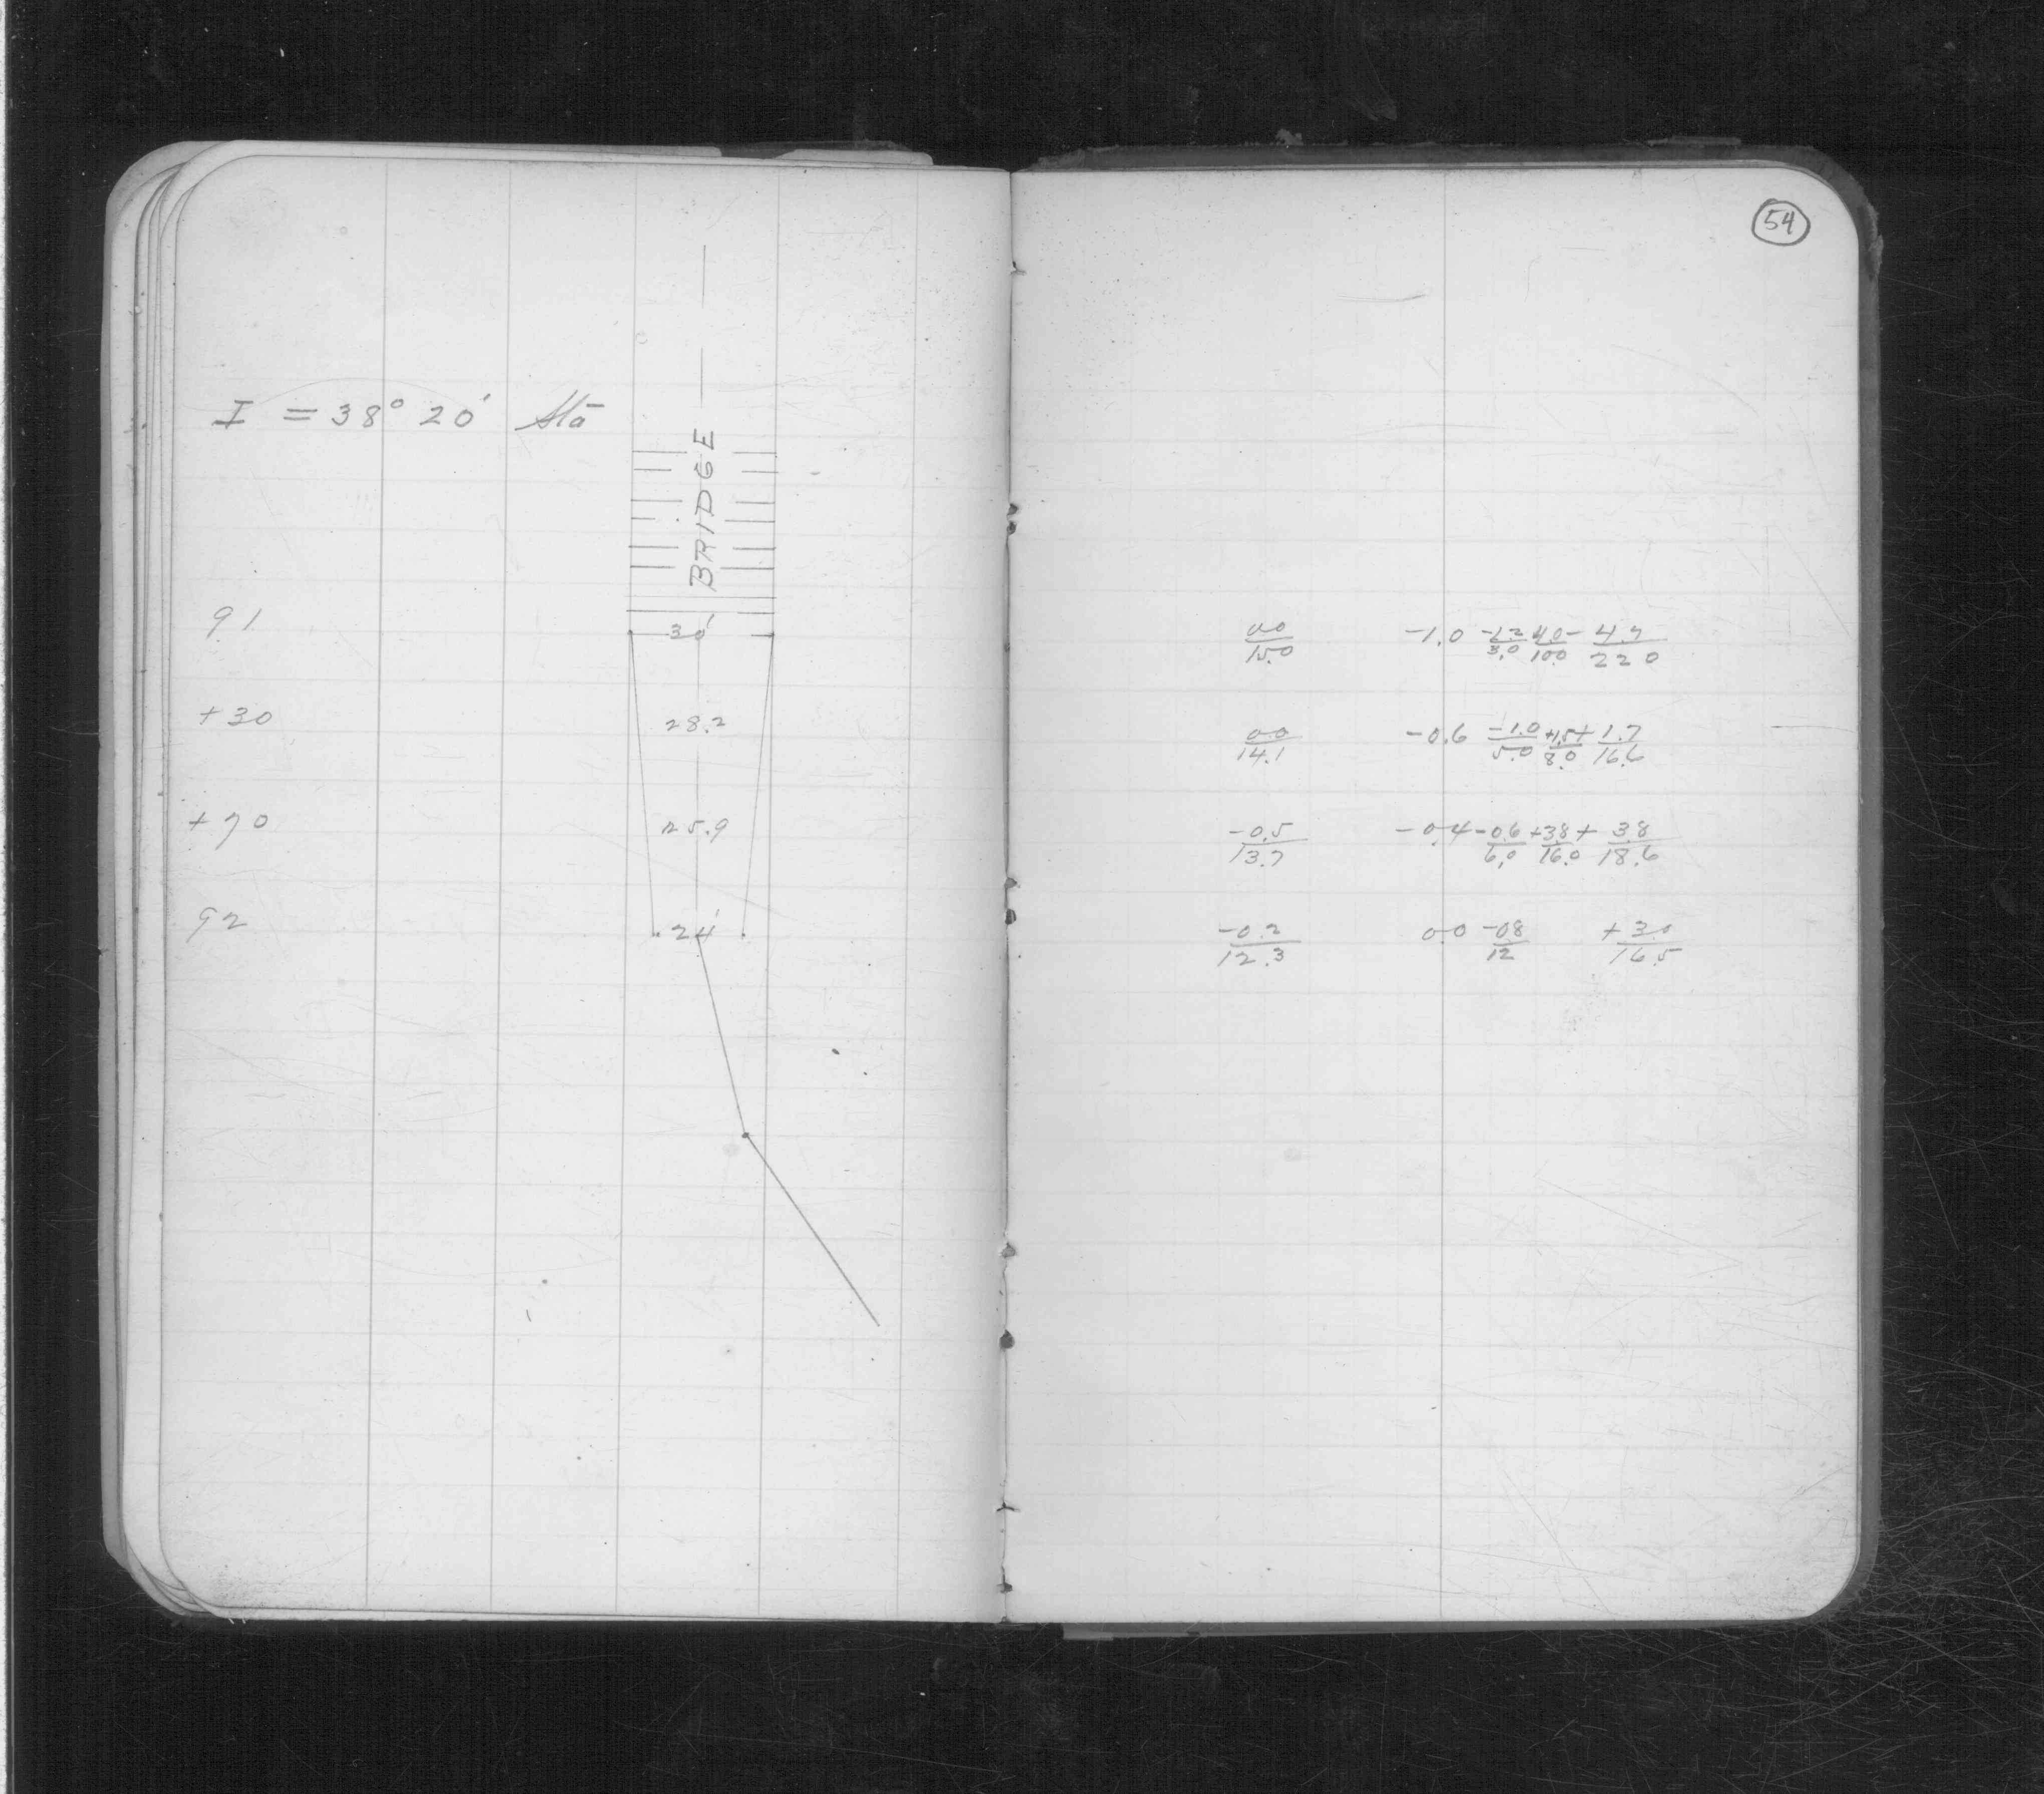 54
I = 38° 20' Sta
BRIDGE
91 30' 0.0/15.0 -1.0 -1.2/3.0 4.0/10.0 - 4.7/22.0
+30 28.2 0.0/14.1 -0.6 -1.0/5.0 +1.5/8.0 + 1.7/16.6
+70 25.9 -0.5/13.7 -0.4 -0.6/6.0 +3.8/16.0 + 3.8/18.6
92 24' -0.2/12.3 0.0 -0.8/12 +3.0/16.5